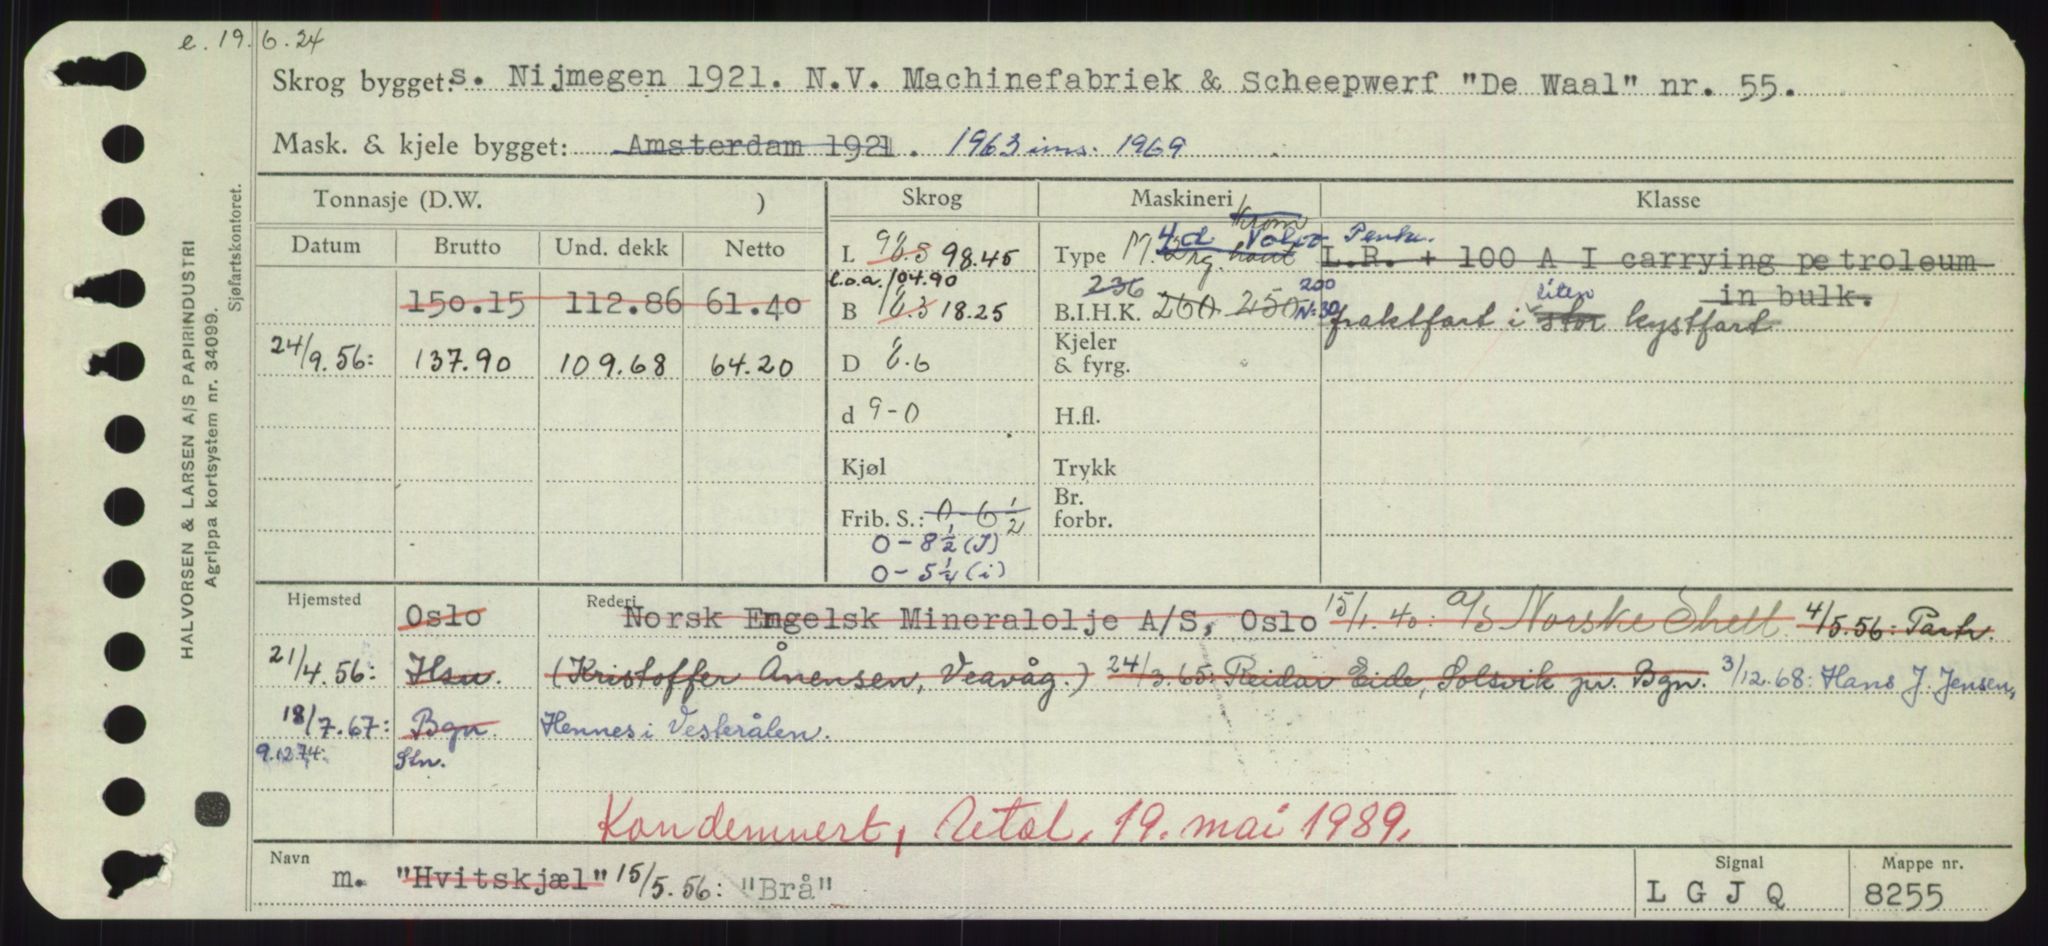 e. 19.6.24
Skrog bygget: s. Nijmegen 1921. N.V. Machinefabriek & Scheepwerf "De Waal" nr. 55.
Mask. & kjele bygget: Amsterdam 1921. 1963 ins. 1969
Tonnasje (D.W. ) Skrog Maskineri Klasse
Datum Brutto Und. dekk Netto
L 98.45 Type M. 4 Volvo Penta. L.R. + 100 A I carrying petroleum
l.o.a. 104.90
in bulk.
150.15 112.86 61.40 B 18.25 B.I.H.K. 236 260 250 200
fraktfart i stor liten kystfart
24/9.56: 137.90 109.68 64.20 D 6.6 Kjeler & fyrg.
d 9-0 H.fl.
Kjøl Trykk
Frib. S.: 0-6 1/2 Br. forbr.
0-8 1/2 (J)
0-5 1/4 (i)
Hjemsted Oslo Rederi Norsk Engelsk Mineralolje A/S, Oslo 15/1.40: A/S Norske Shell 4/5.56: Partr.
21/4.56: Hsu. (Kristoffer Ånensen, Veavåg.) 24/3.65: Reidar Eide, Solsvik pr. Bgn. 3/12.68: Hans J. Jensen,
18/7.67: Bgn. Hennes i Vesterålen.
9.12.74: Stn.
Kondemnert, 19. mai 1989.
Navn m. "Hvitskjæl" 15/5.56: "Brå" Signal LGJQ Mappe nr. 8255
HALVORSEN & LARSEN A/S PAPIRINDUSTRI
Agrippa kortsystem nr. 34099.
Sjøfartskontoret.